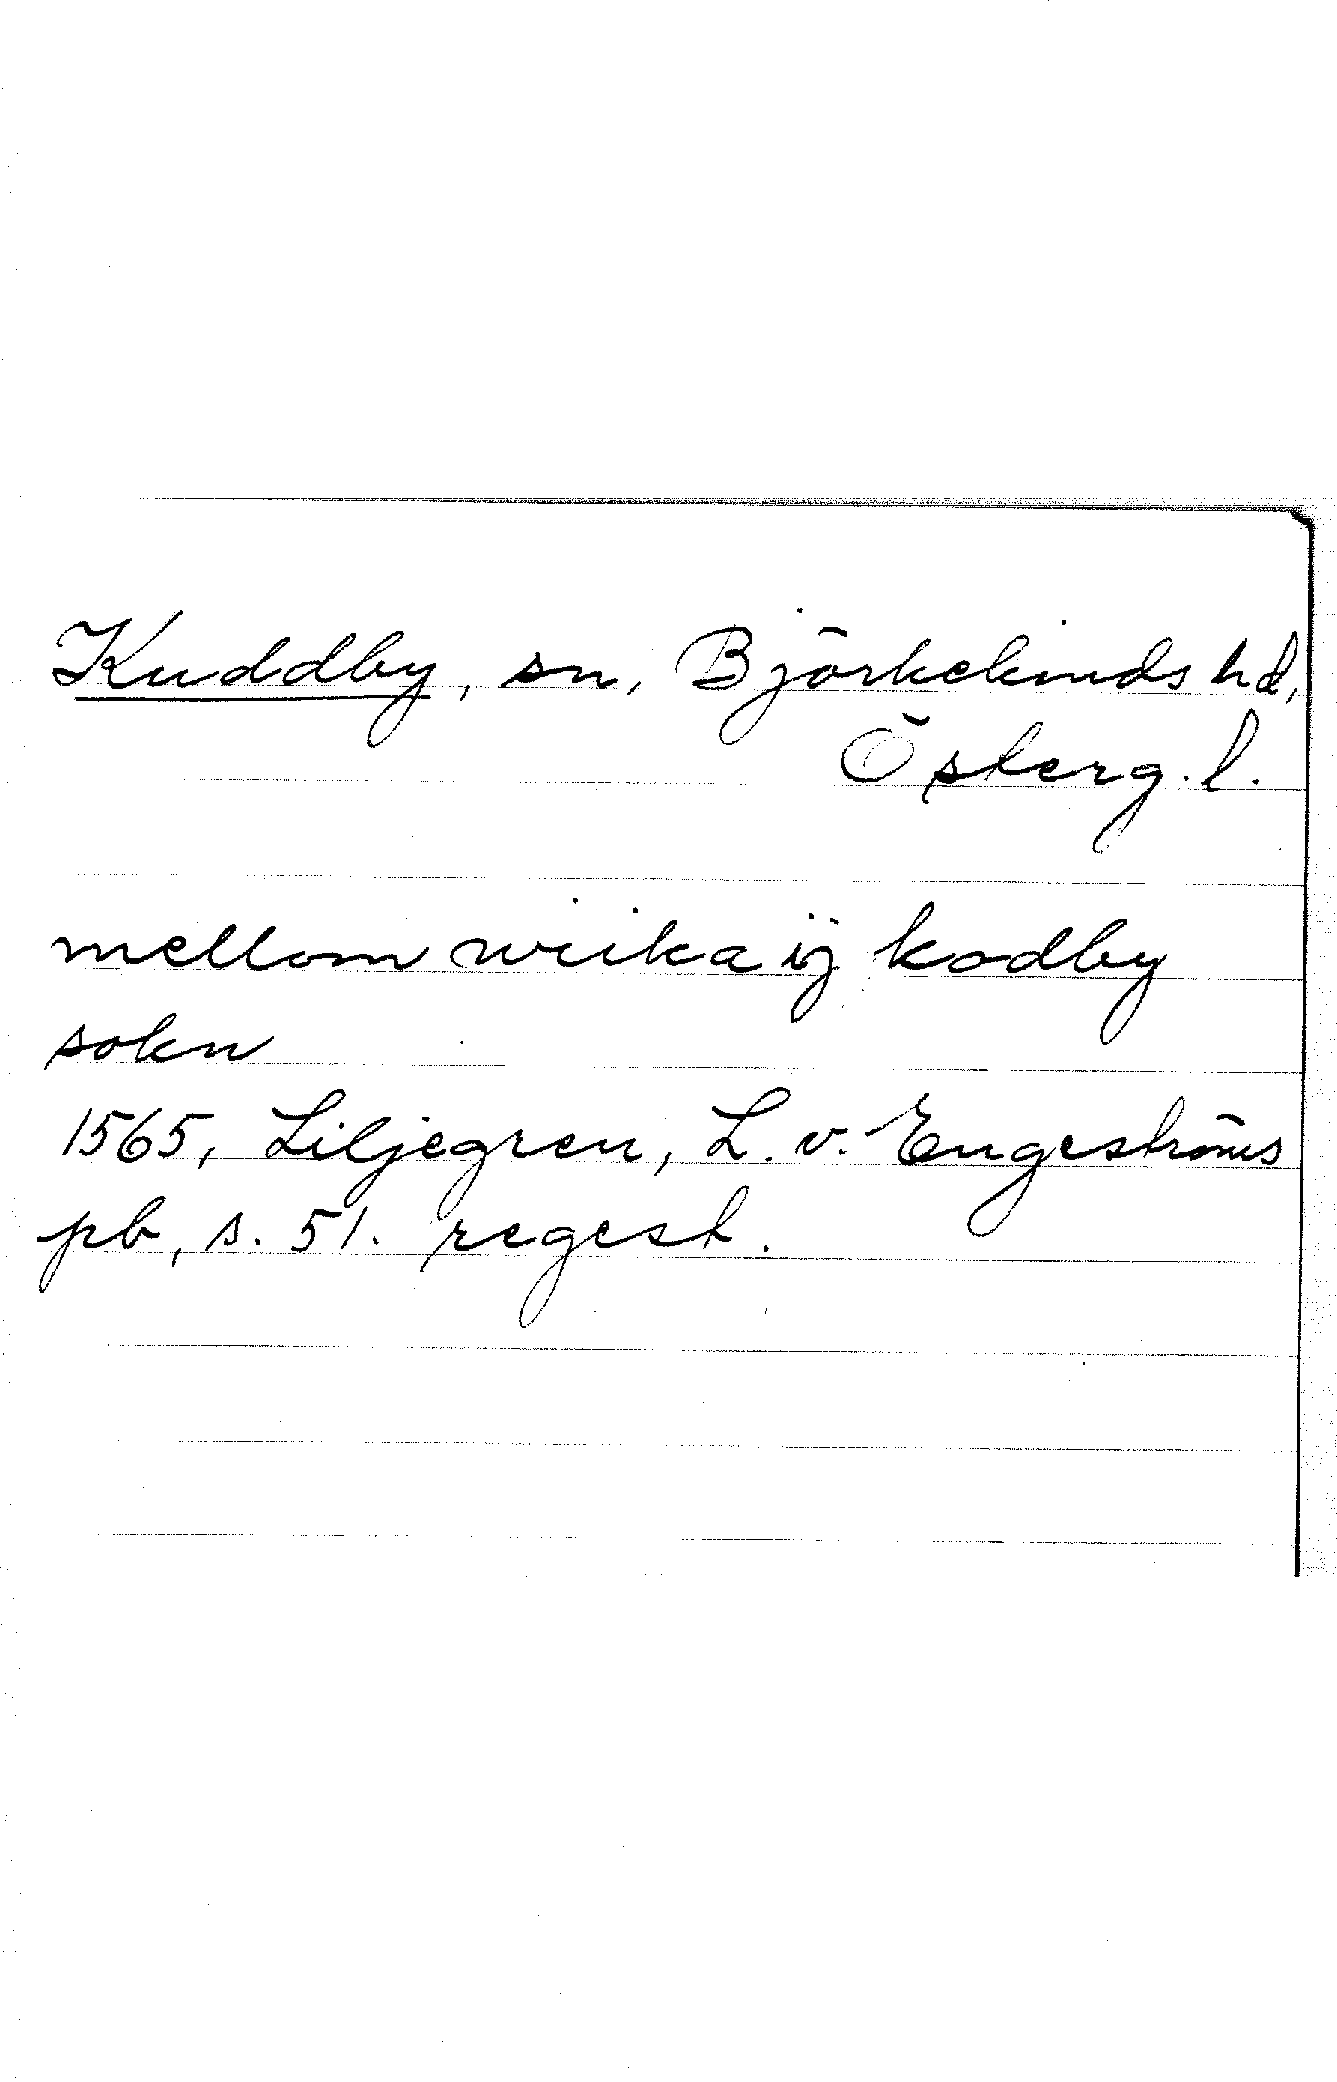 Kuddby, sn, Björkekinds hd,
Österg. l.
mellom wiika ij kodby
sokn
1565, Liljegren, L. v. Engeströms
pb, s. 51. regest.